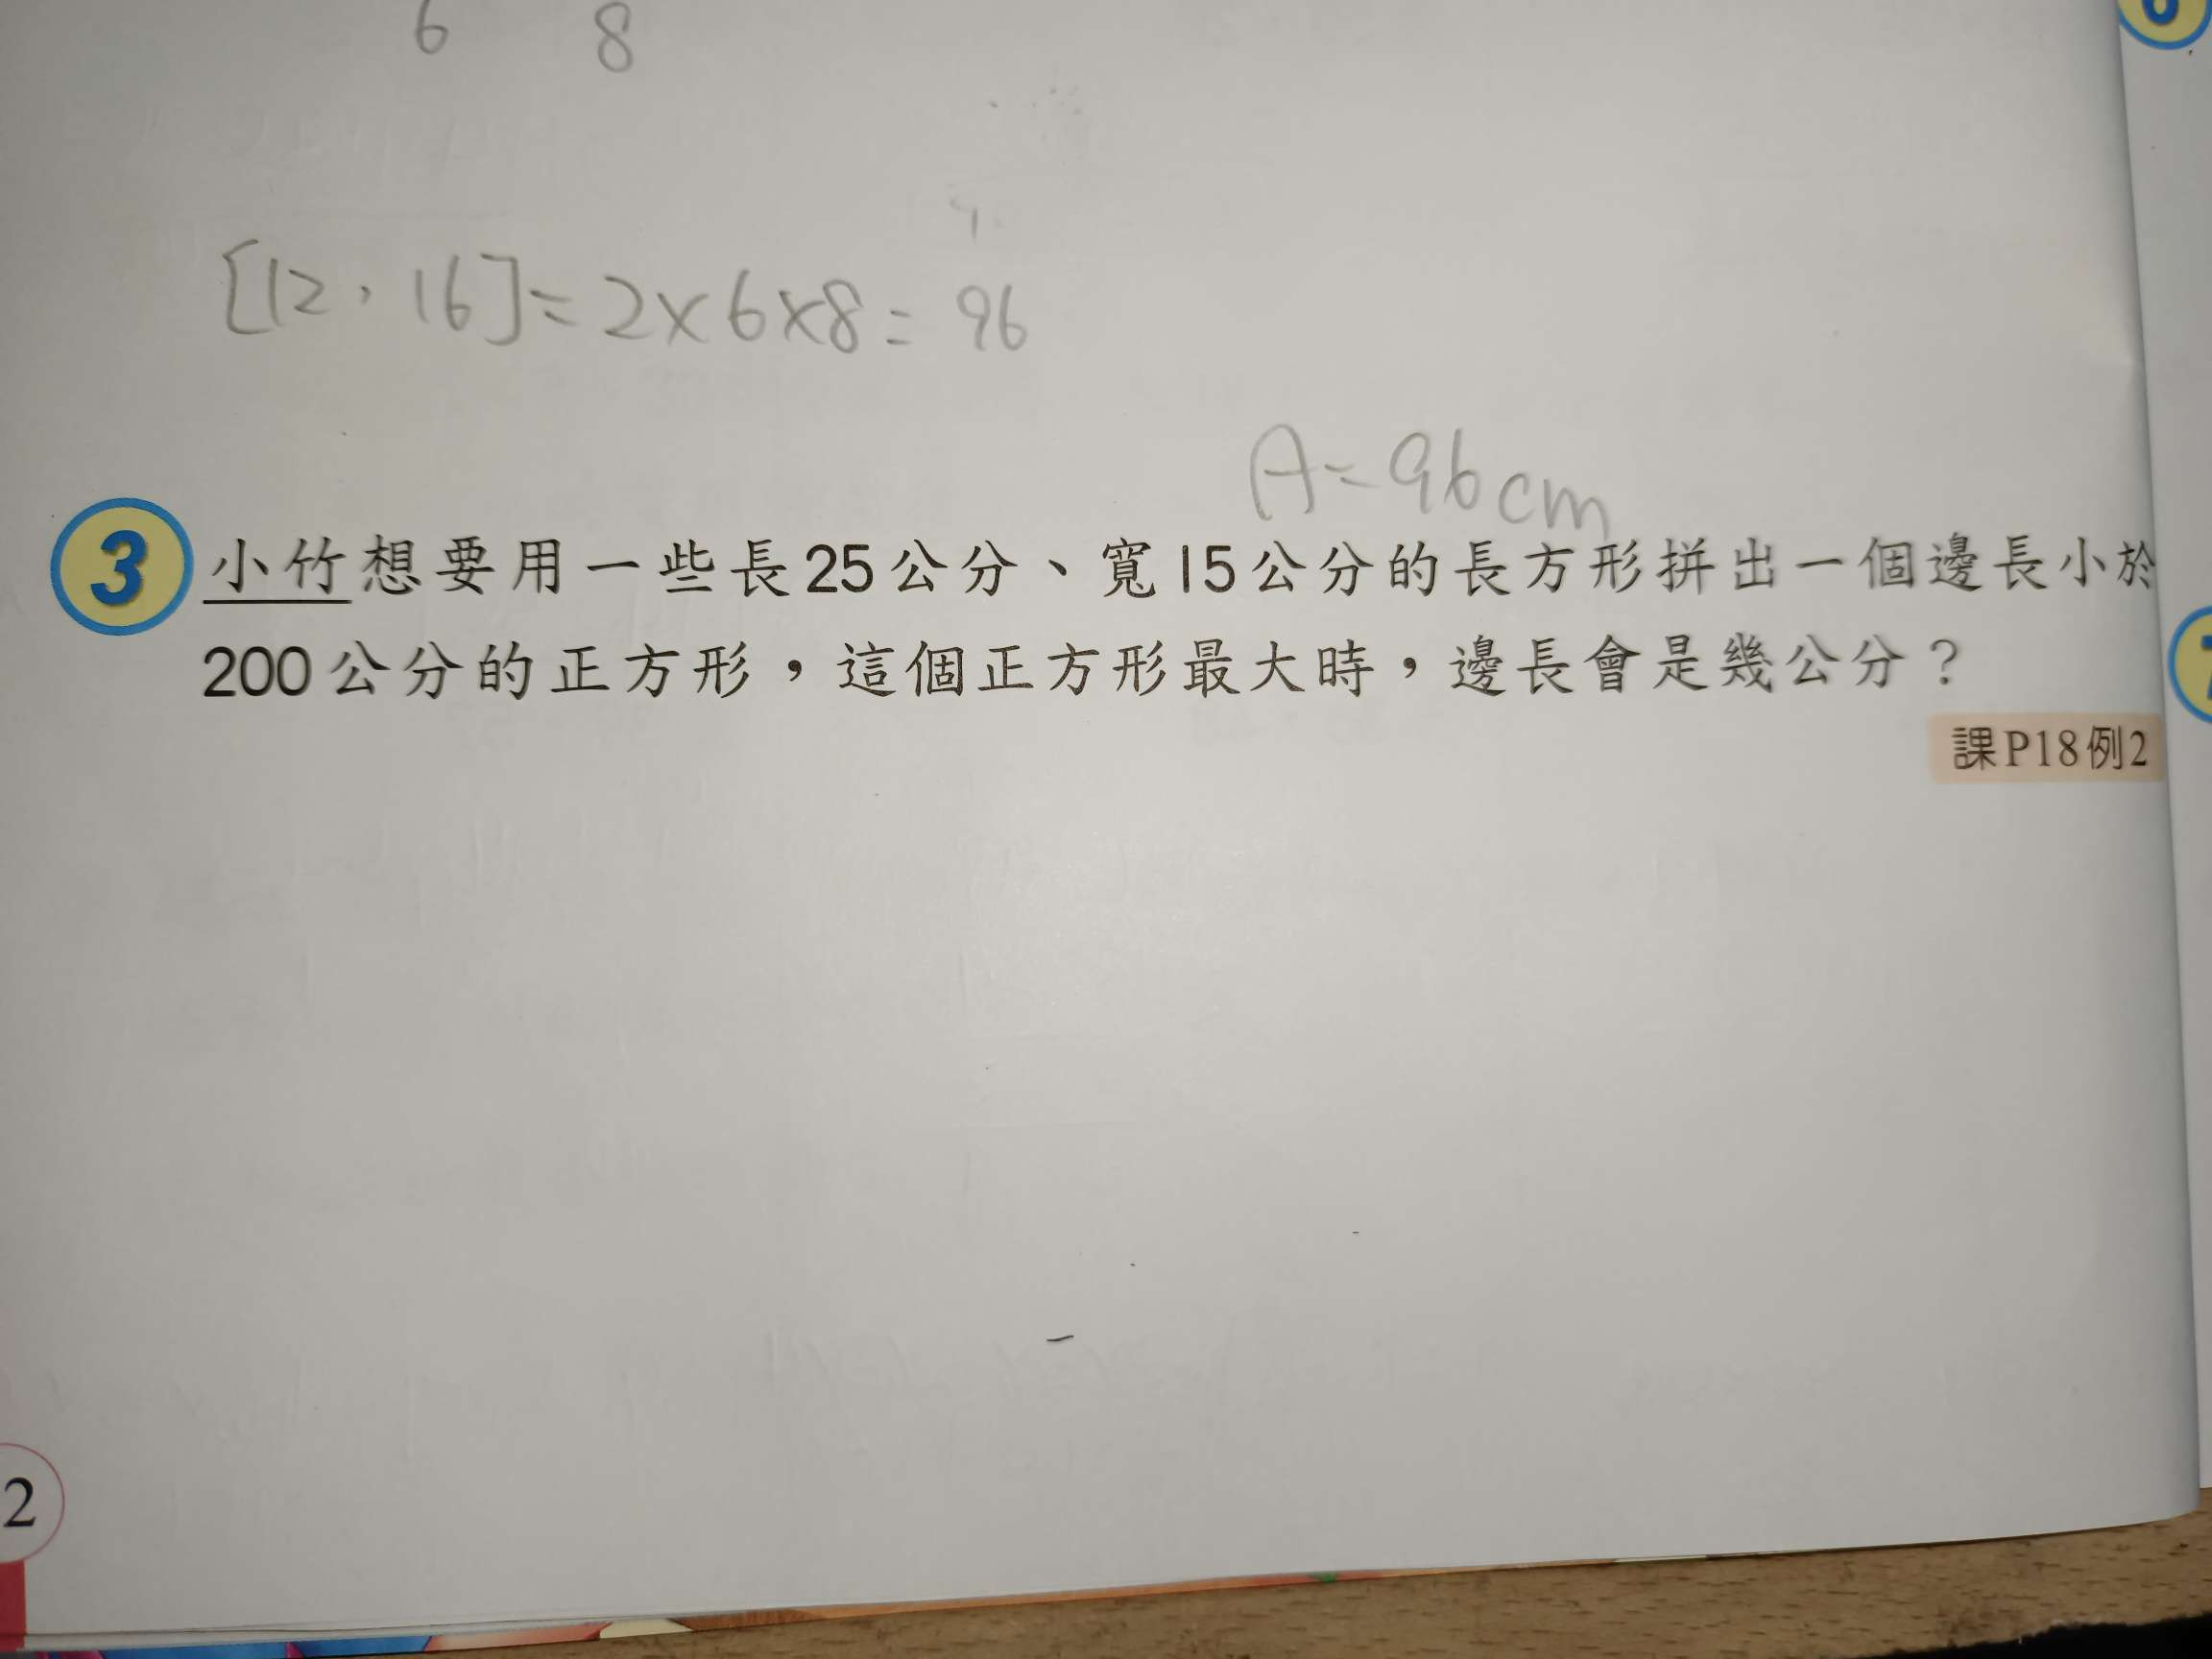 6 8
[12,16]=2×6×8=96
A=96cm
3 小竹想要用一些長25公分、寬15公分的長方形拼出一個邊長小於
200公分的正方形,這個正方形最大時,邊長會是幾公分?
課P18例2
2